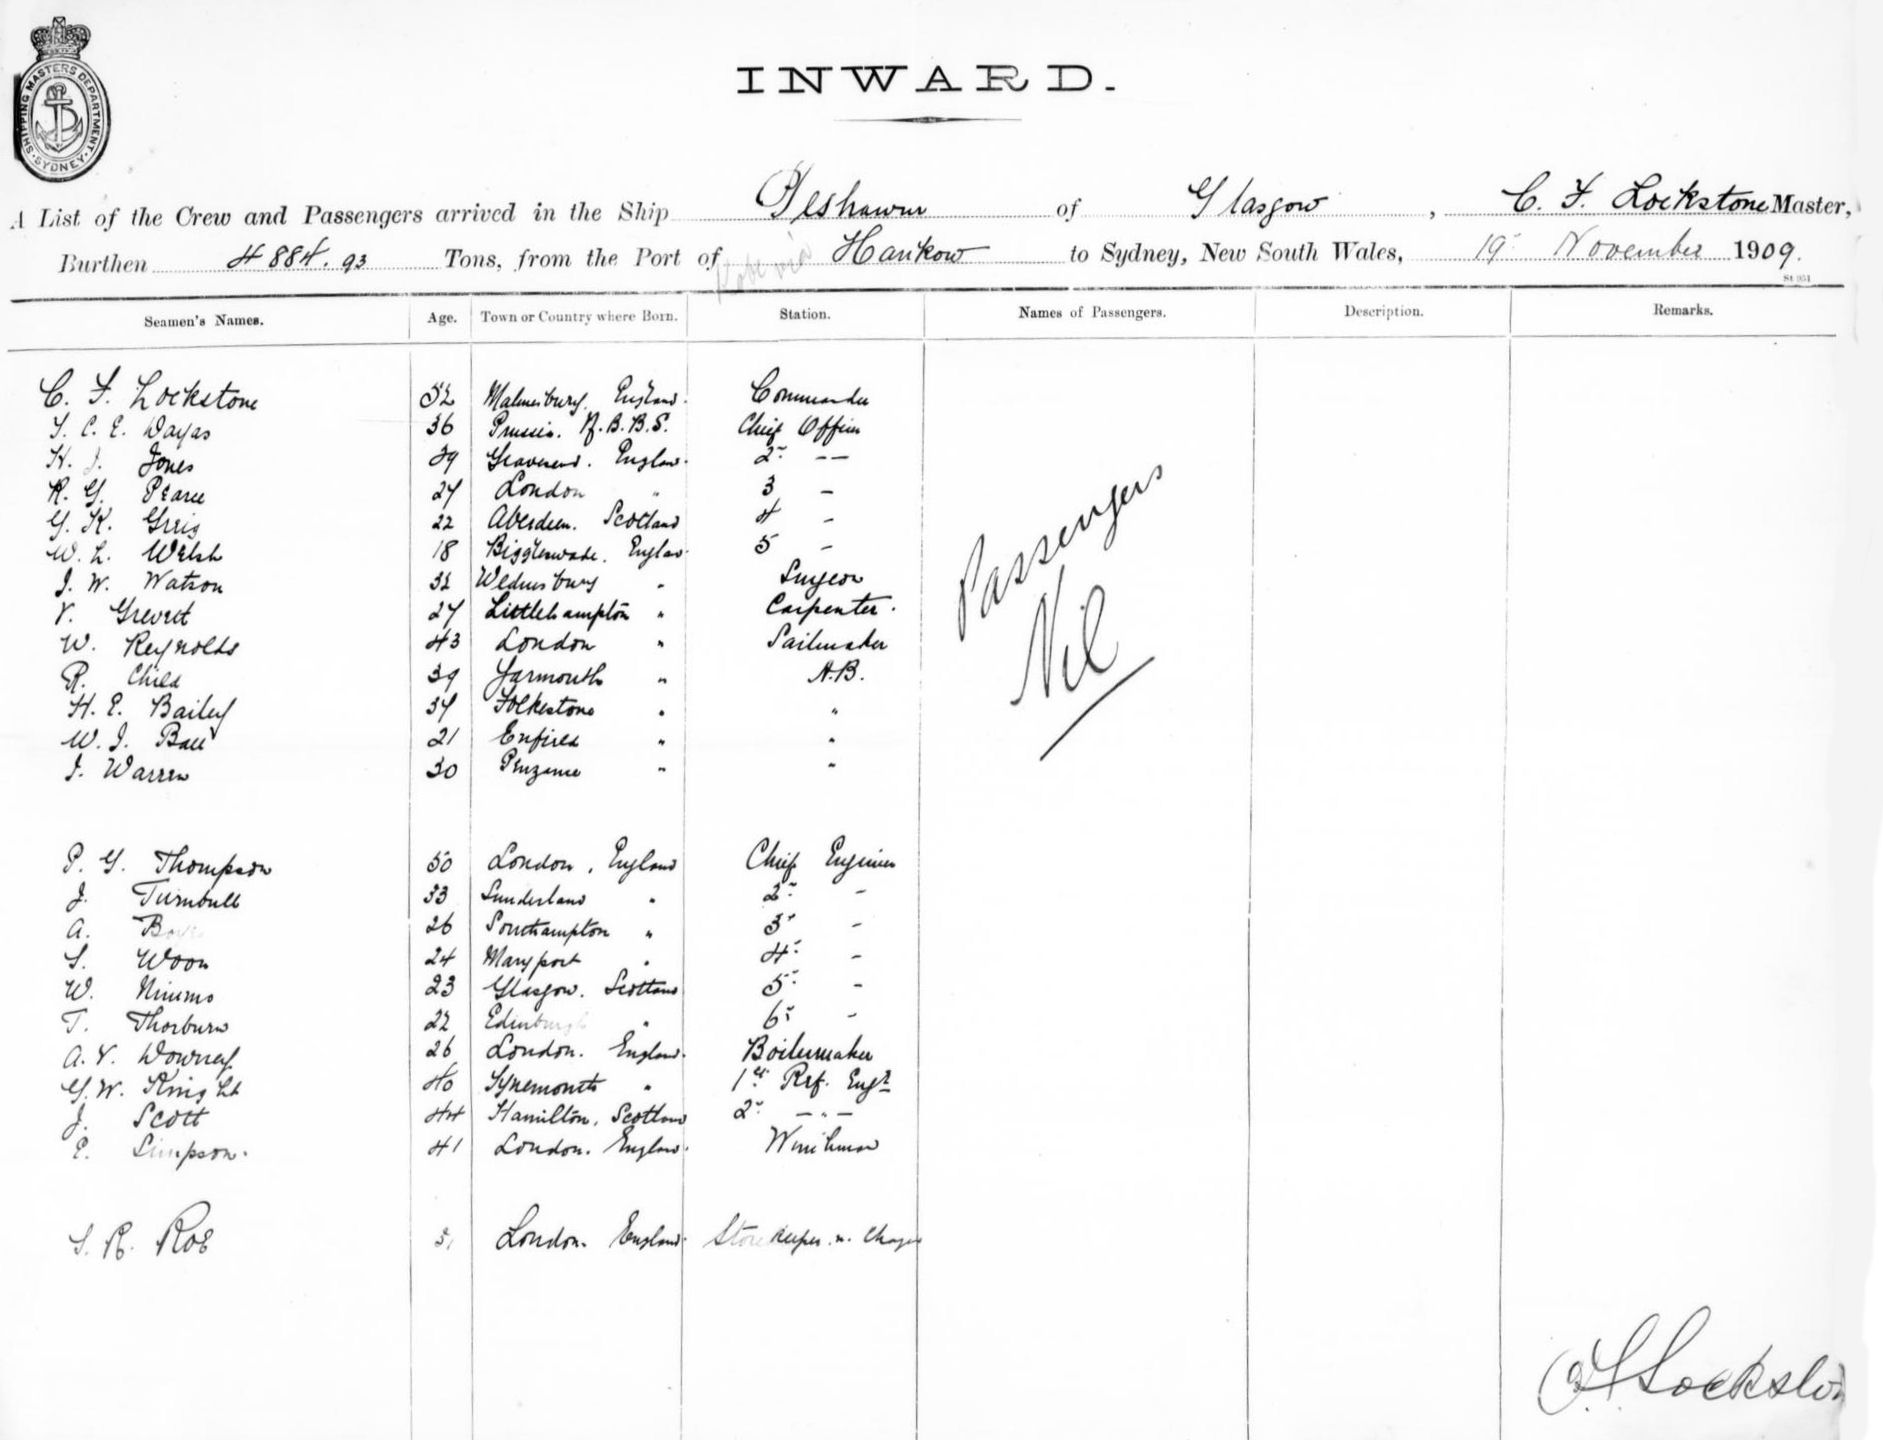 SHIPPING MASTERS DEPARTMENT
SYDNEY
INWARD.
A List of the Crew and Passengers arrived in the Ship Peshawur of Glasgow, C. F. Lockstone Master,
Burthen 4884.93 Tons, from the Port of Hankow to Sydney, New South Wales, 19 November 1909.
Seamen's Names. Age. Town or Country where Born. Station. Names of Passengers. Description. Remarks.
C. F. Lockstone 52 Malmesbury. England. Commander
36 Prussia. Chief Officer
H. J. Jones 29 Gravesend. England. 2 — —
R. G. Pearce 27 London " 3 -
G. K. Greig 22 Aberdeen. Scotland 4 -
W. L. Welsh 18 Biggleswade. England 5 -
J. W. Watson 32 Wednesbury " Surgeon
V. Grevett 27 Littlehampton " Carpenter.
W. Reynolds 43 London " Sailmaker
R. Child 39 Yarmouth " A.B.
H. E. Bailey 34 Folkestone " "
W. J. Ball 21 Enfield " "
J. Warren 30 Penzance " "
Passengers
Nil
P. G. Thompson 50 London, England Chief Engineer
J. Turnbull 33 Sunderland " 2 -
A. 26 Southampton " 3 -
S. Woon 24 Maryport " 4 -
W. Nimmo 23 Glasgow. Scotland 5 -
T. Thorburn 22 Edinburgh " 6 -
A. V. Downey 26 London. England. Boilermaker
G. W. Knight 40 Tynemouth " 1st Ref. Engr
J. Scott 44 Hamilton, Scotland 2 — " —
E. Simpson. 41 London. England. Winchman
S. R. Roe London. England. Storekeeper in Charge
C. F. Lockstone